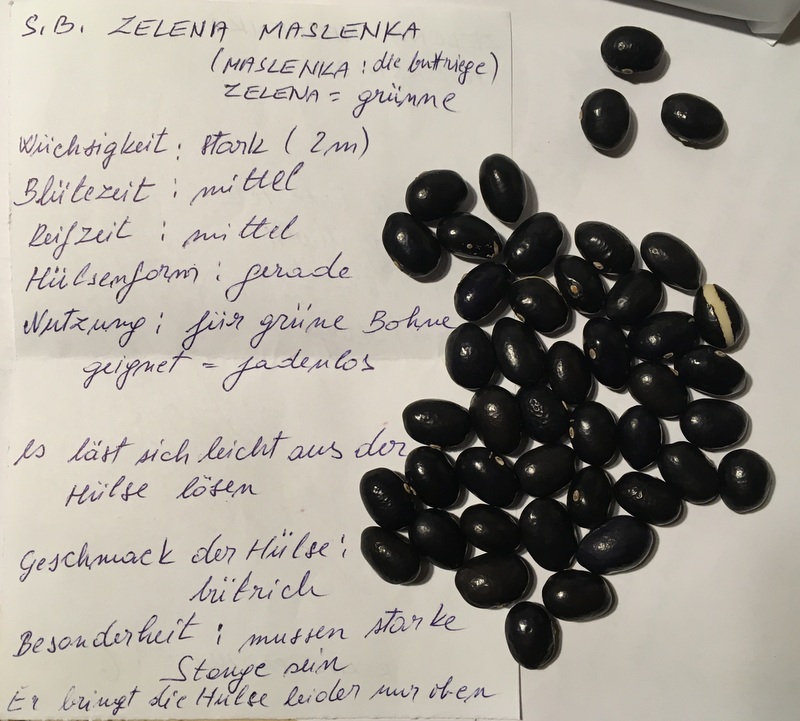 S.B. ZELENA MASLENKA
(MASLENKA : die buttriege)
ZELENA = grünne
Wüchsigkeit : stark ( 2m)
Blütezeit : mittel
Reifzeit : mittel
Hülsenform : gerade
Nutzung : für grüne Bohne
geignet = fadenlos
Es läst sich leicht aus der
Hülse lösen
Geschmack der Hülse :
bütrich
Besonderheit : mussen starke
Stange sein
Er bringt die Hülse leider nur oben